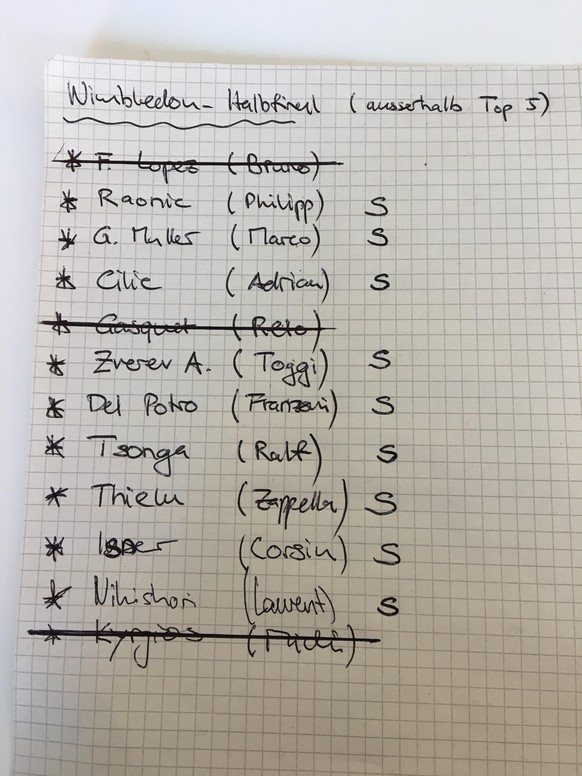 Wimbledon-Halbfinal (ausserhalb Top 5)
* F. Lopez (Bruno)
* Raonic (Philipp) S
* G. Muller (Marco) S
* Cilic (Adrian) S
* Gasquet (Reto)
* Zverev A. (Toggi) S
* Del Potro (Franzoni) S
* Tsonga (Ralf) S
* Thiem (Zappella) S
* Isner (Corsin) S
* Nihishori (Laurent) S
* Kyrgios